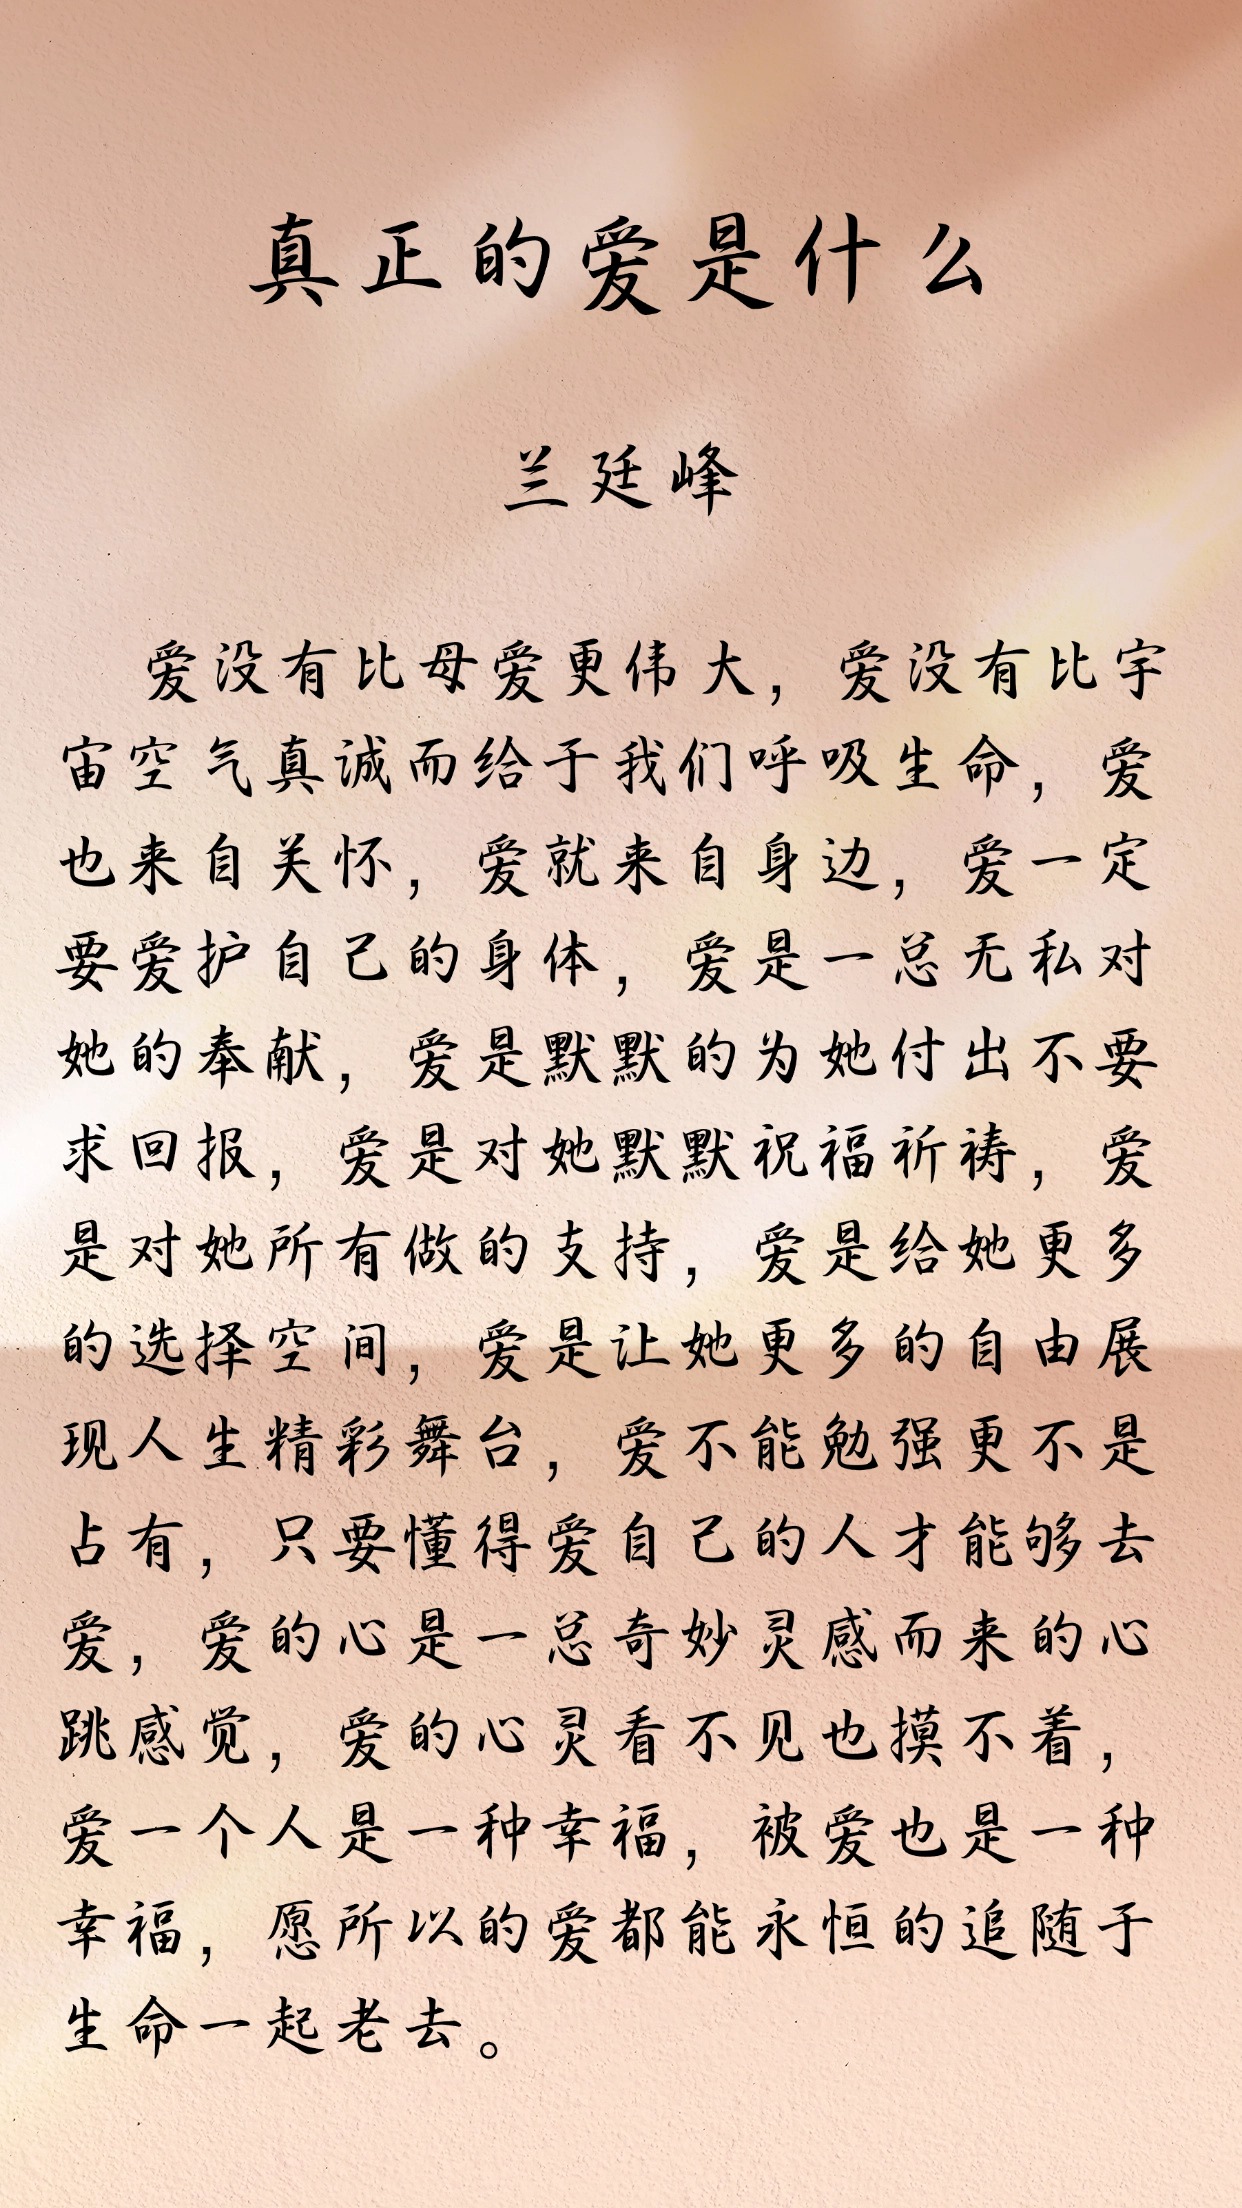 真正的爱是什么
兰廷峰
爱没有比母爱更伟大，爱没有比宇
宙空气真诚而给于我们呼吸生命，爱
也来自关怀，爱就来自身边，爱一定
要爱护自己的身体，爱是一总无私对
她的奉献，爱是默默的为她付出不要
求回报，爱是对她默默祝福祈祷，爱
是对她所有做的支持，爱是给她更多
的选择空间，爱是让她更多的自由展
现人生精彩舞台，爱不能勉强更不是
占有，只要懂得爱自己的人才能够去
爱，爱的心是一总奇妙灵感而来的心
跳感觉，爱的心灵看不见也摸不着，
爱一个人是一种幸福，被爱也是一种
幸福，愿所以的爱都能永恒的追随于
生命一起老去。